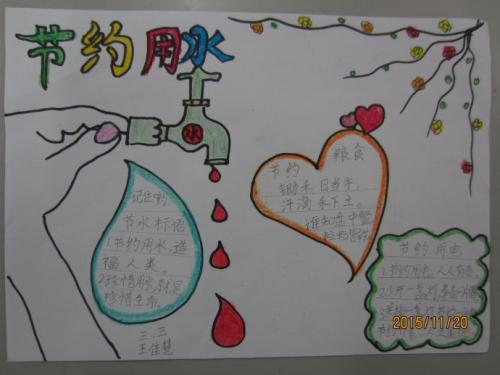 节约用水
水
记住哟
节水标语
1.节约用水,造
福人类。
2.珍惜用水,就是
珍惜生命。
三.三
王佳慧
节约
粮食
锄禾日当午,
汗滴禾下土。
谁知盘中餐
粒粒皆辛苦
节约用电
1.节约用电,人人有责。
2.少开一盏灯
2015/11/20